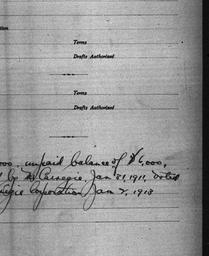 tion
Terms
Drafts Authorized
Terms
Drafts Authorized
000, unpaid balance of $6,000,
d by Mr Carnegie, Jan 31, 1911, voted
negie Corporation Jan 2, 1913